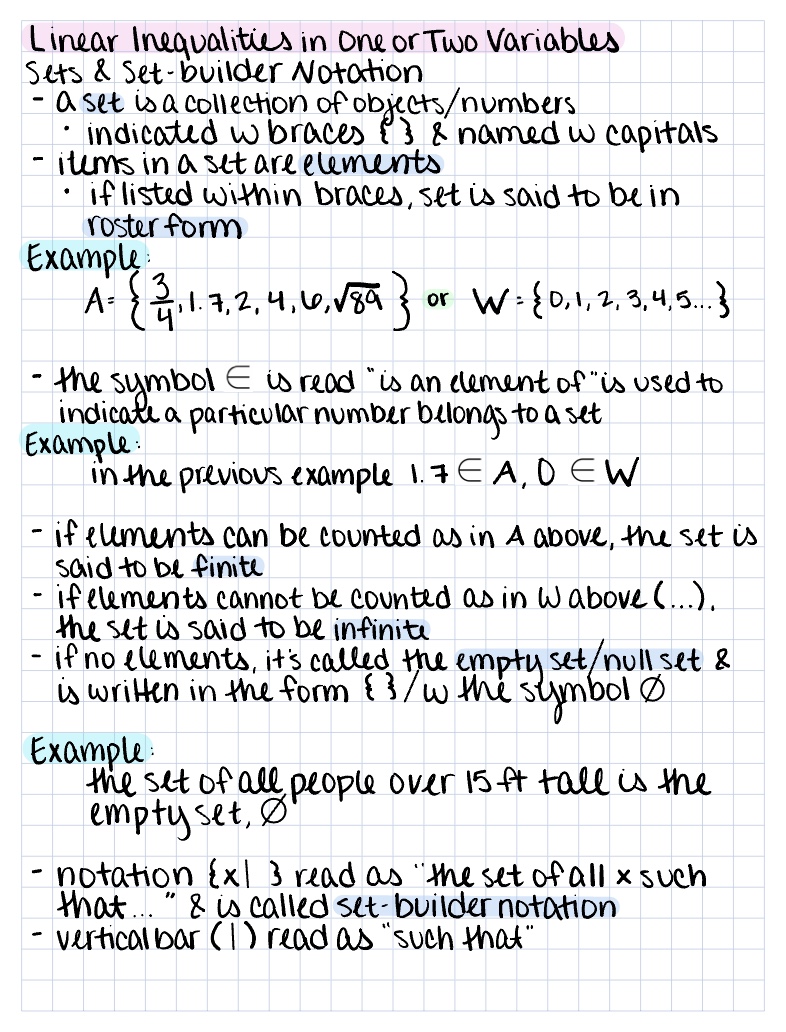 Linear Inequalities in One or Two Variables
Sets & Set-builder Notation
- a set is a collection of objects/numbers
· indicated w braces { } & named w capitals
- items in a set are elements
· if listed within braces, set is said to be in
roster form
Example:
A= { 3/4, 1.7, 2, 4, 6, √89 } or W = {0, 1, 2, 3, 4, 5...}
- the symbol ∈ is read "is an element of" is used to
indicate a particular number belongs to a set
Example:
in the previous example 1.7 ∈ A, 0 ∈ W
- if elements can be counted as in A above, the set is
said to be finite
- if elements cannot be counted as in W above (...),
the set is said to be infinite
- if no elements, it's called the empty set/null set &
is written in the form { }/w the symbol ∅
Example:
the set of all people over 15 ft tall is the
empty set, ∅
- notation {x| } read as "the set of all x such
that... " & is called set-builder notation
- vertical bar (|) read as "such that"